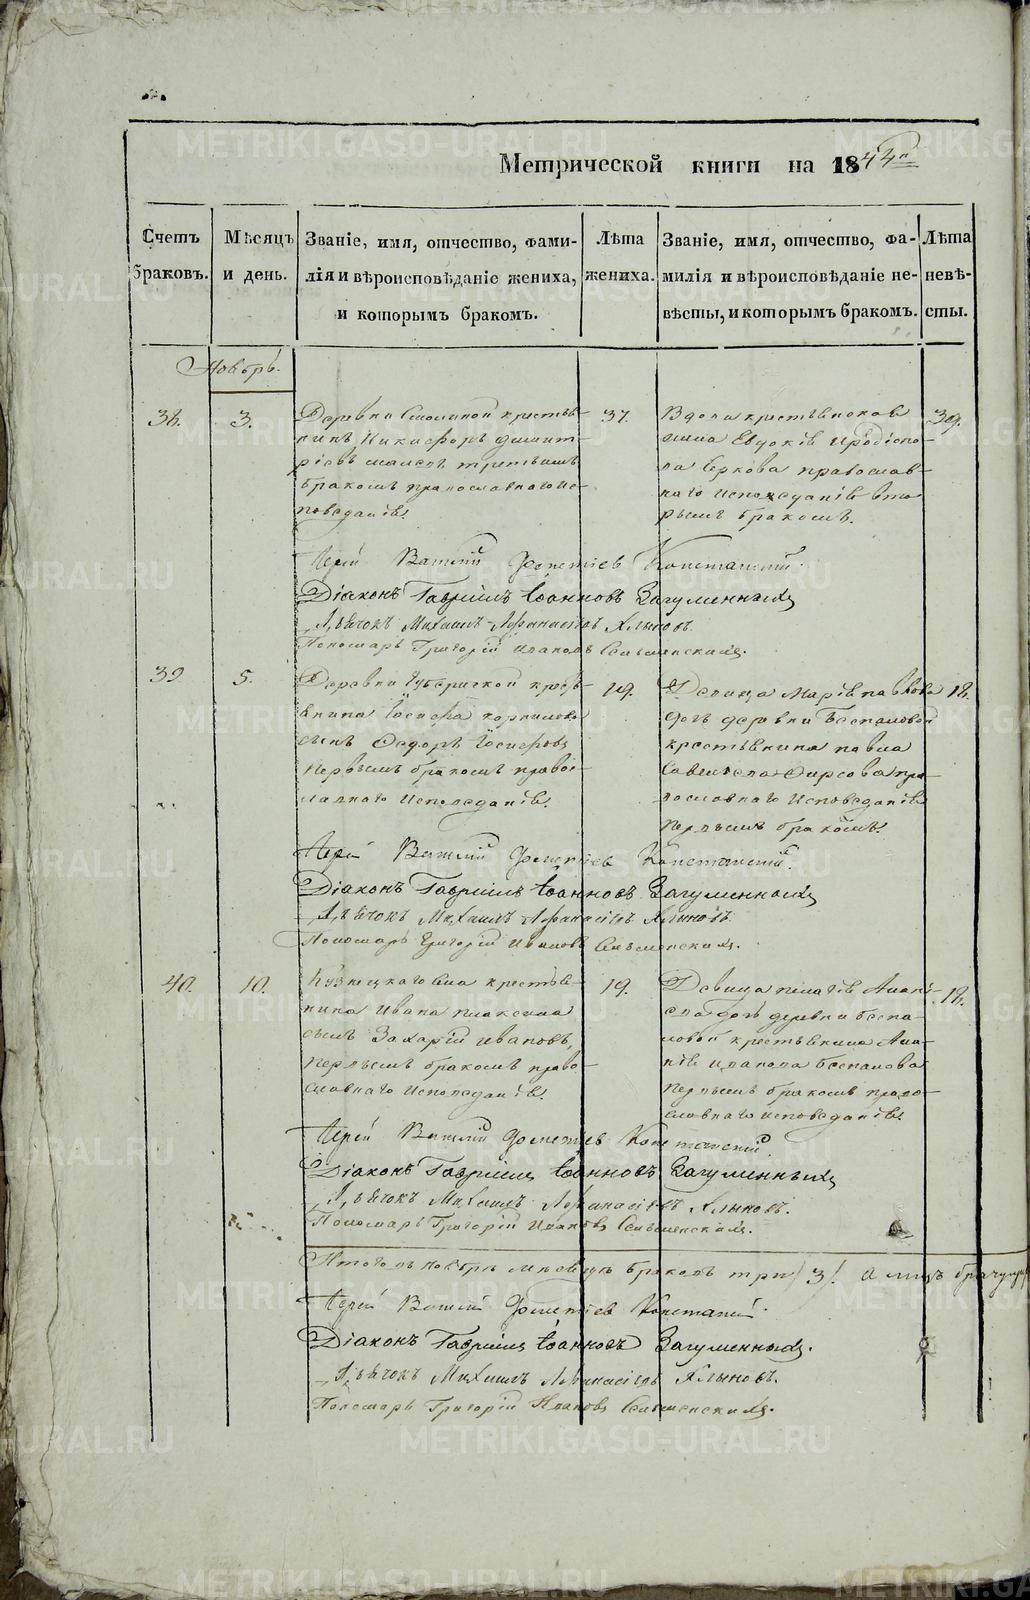 Метрической книги на 1844й
Счетъ браковъ.
Мѣсяцъ и день.
Званіе, имя, отчество, фами-
лія и вѣроисповѣданіе жениха,
и которымъ бракомъ.
Лѣта жениха.
Званіе, имя, отчество, фа-
милія и вѣроисповѣданіе не-
вѣсты, и которымъ бракомъ.
Лѣта невѣ-
сты.
Ноябрь.
38.
3.
Деревни крестья-
нинъ Никифоръ Димит-
ріевъ третьимъ
бракомъ православнаго ис-
поведанія.
37.
Вдова крестьянская
Евдокія
православ-
наго исповеданія вто
рымъ бракомъ.
39.
Іерей Василій Константиновскій.
Діаконъ Гавріилъ Іоанновъ Загуменныхъ
Дьячокъ Михаилъ Афанасіевъ Хлыновъ.
Пономарь Григорій Ивановъ
39
5.
Деревни крестья-
янина Іосифа Корнилова
сынъ Ѳедоръ Іосифовъ
первымъ бракомъ право-
славнаго исповеданія.
19.
Девица Марія Павлова
дочь деревни Беспаловой
крестьянина Павла
Савельева Фирсова пра-
вославнаго исповеданія
первымъ бракомъ.
18.
Іерей Василій
Діаконъ Гавріилъ Іоанновъ Загуменныхъ
Дьячокъ Михаилъ Афанасіевъ Хлыновъ
Пономарь Григорій Ивановъ
40.
10.
Кузнецкаго села крестья-
нина Ивана Максима
сынъ Захарій Ивановъ,
первымъ бракомъ право-
славнаго исповеданія.
19.
Девица Пелагія Анань-
ева дочь деревни Беспа-
ловой крестьянина Ана-
нія Иванова Беспалова
первымъ бракомъ право-
славнаго исповеданія.
18.
Іерей Василій
Діаконъ Гавріилъ Іоанновъ Загуменныхъ
Дьячокъ Михаилъ Афанасіевъ Хлыновъ.
Пономарь Григорій Ивановъ
Итого въ ноябре месяце браковъ три / 3/. а лицъ
Іерей Василій
Діаконъ Гавріилъ Іоанновъ Загуменныхъ.
Дьячокъ Михаилъ Афанасіевъ Хлыновъ.
Пономарь Григорій Ивановъ
METRIKI.GASO-URAL.RU